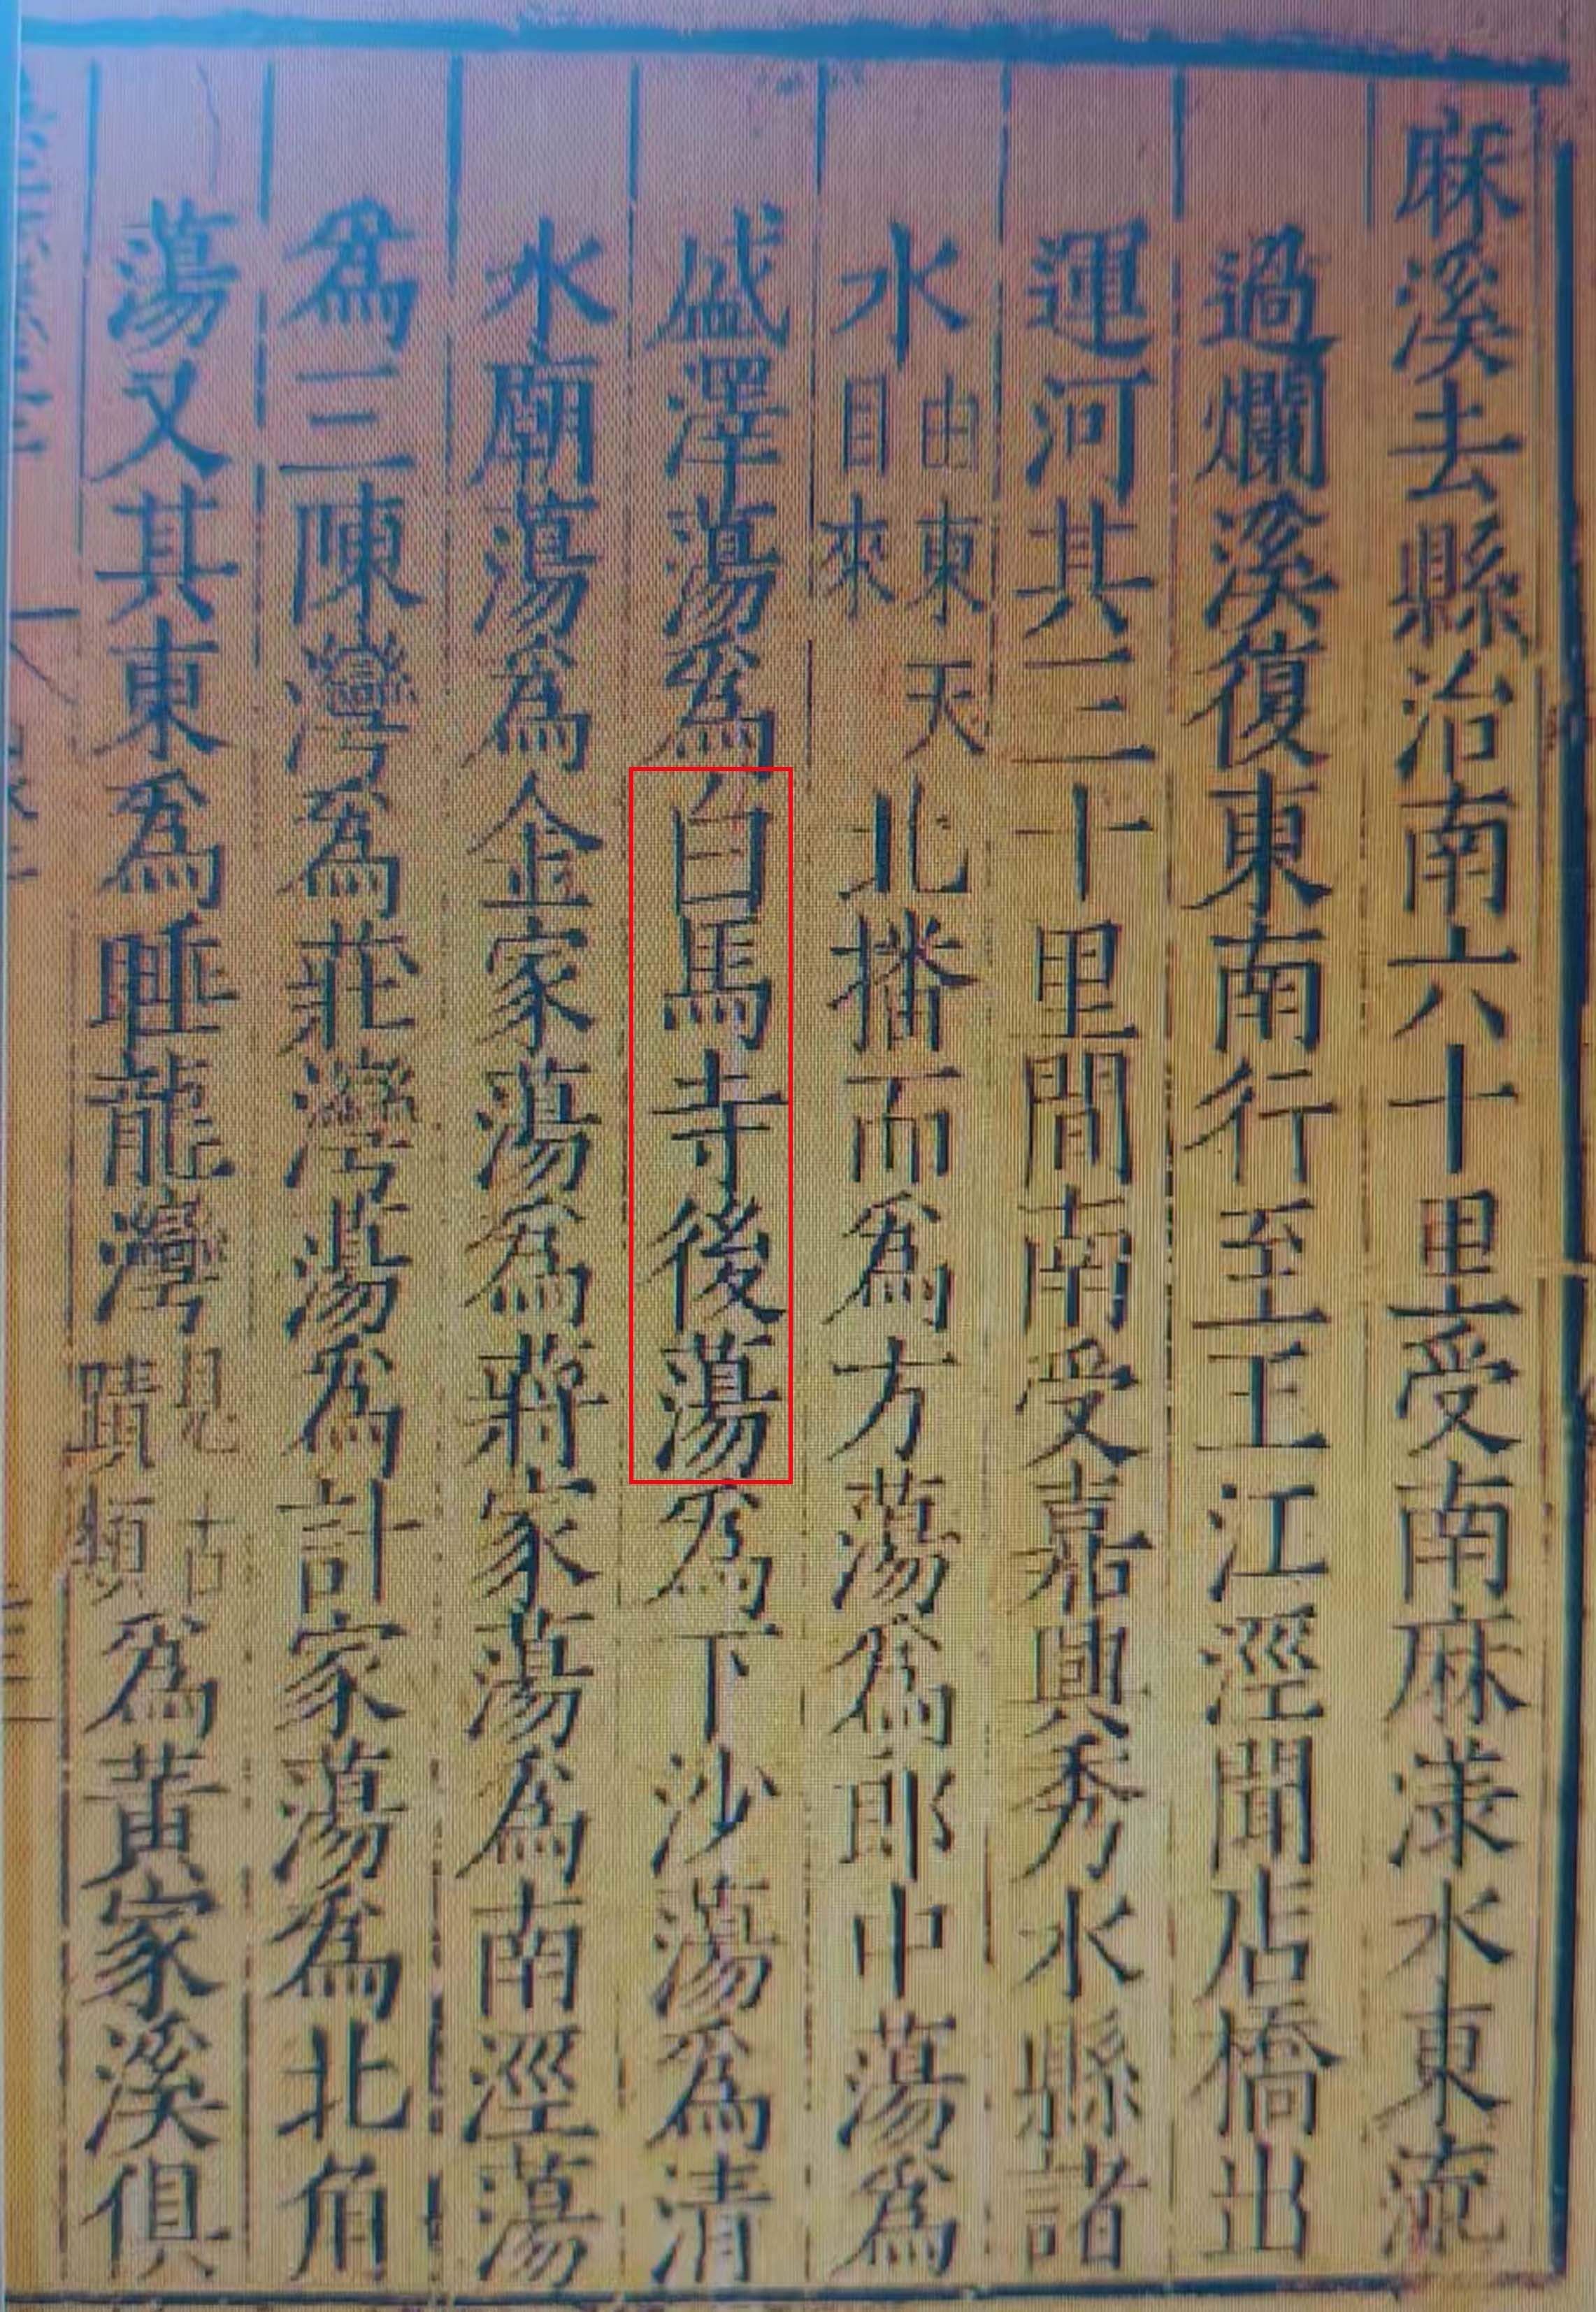 麻溪去縣治南六十里受南麻漾水東流
過爛溪復東南行至王江涇聞店橋出
運河其三十里間南受嘉興秀水縣諸
水由東天目來北播而爲方蕩爲郎中蕩爲
盛澤蕩爲白馬寺後蕩爲下沙蕩爲清
水廟蕩爲金家蕩爲蔣家蕩爲南涇蕩
爲三陳灣爲莊灣蕩爲計家蕩爲北角
蕩又其東爲睡龍灣見古蹟類爲黃家溪俱